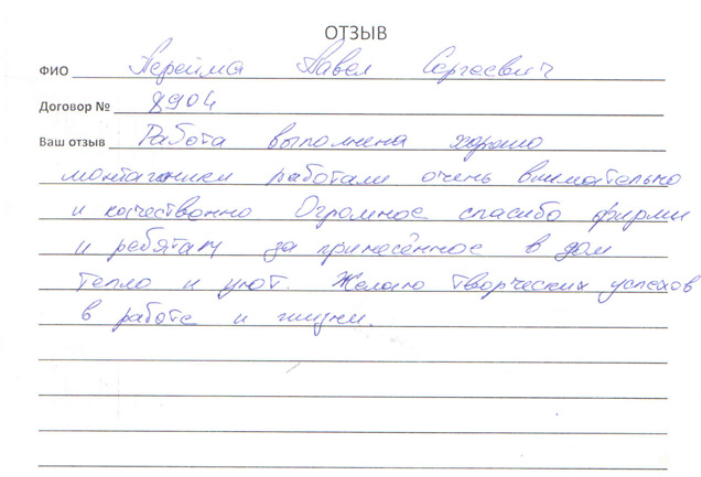 ОТЗЫВ
ФИО Перейма Павел Сергеевич
Договор № 8904
Ваш отзыв Работа выполнена хорошо
монтажники работали очень внимательно
и качественно Огромное спасибо фирми
и ребятам за принесённое в дом
тепло и уют. Желаю творческих успехов
в работе и жизни.